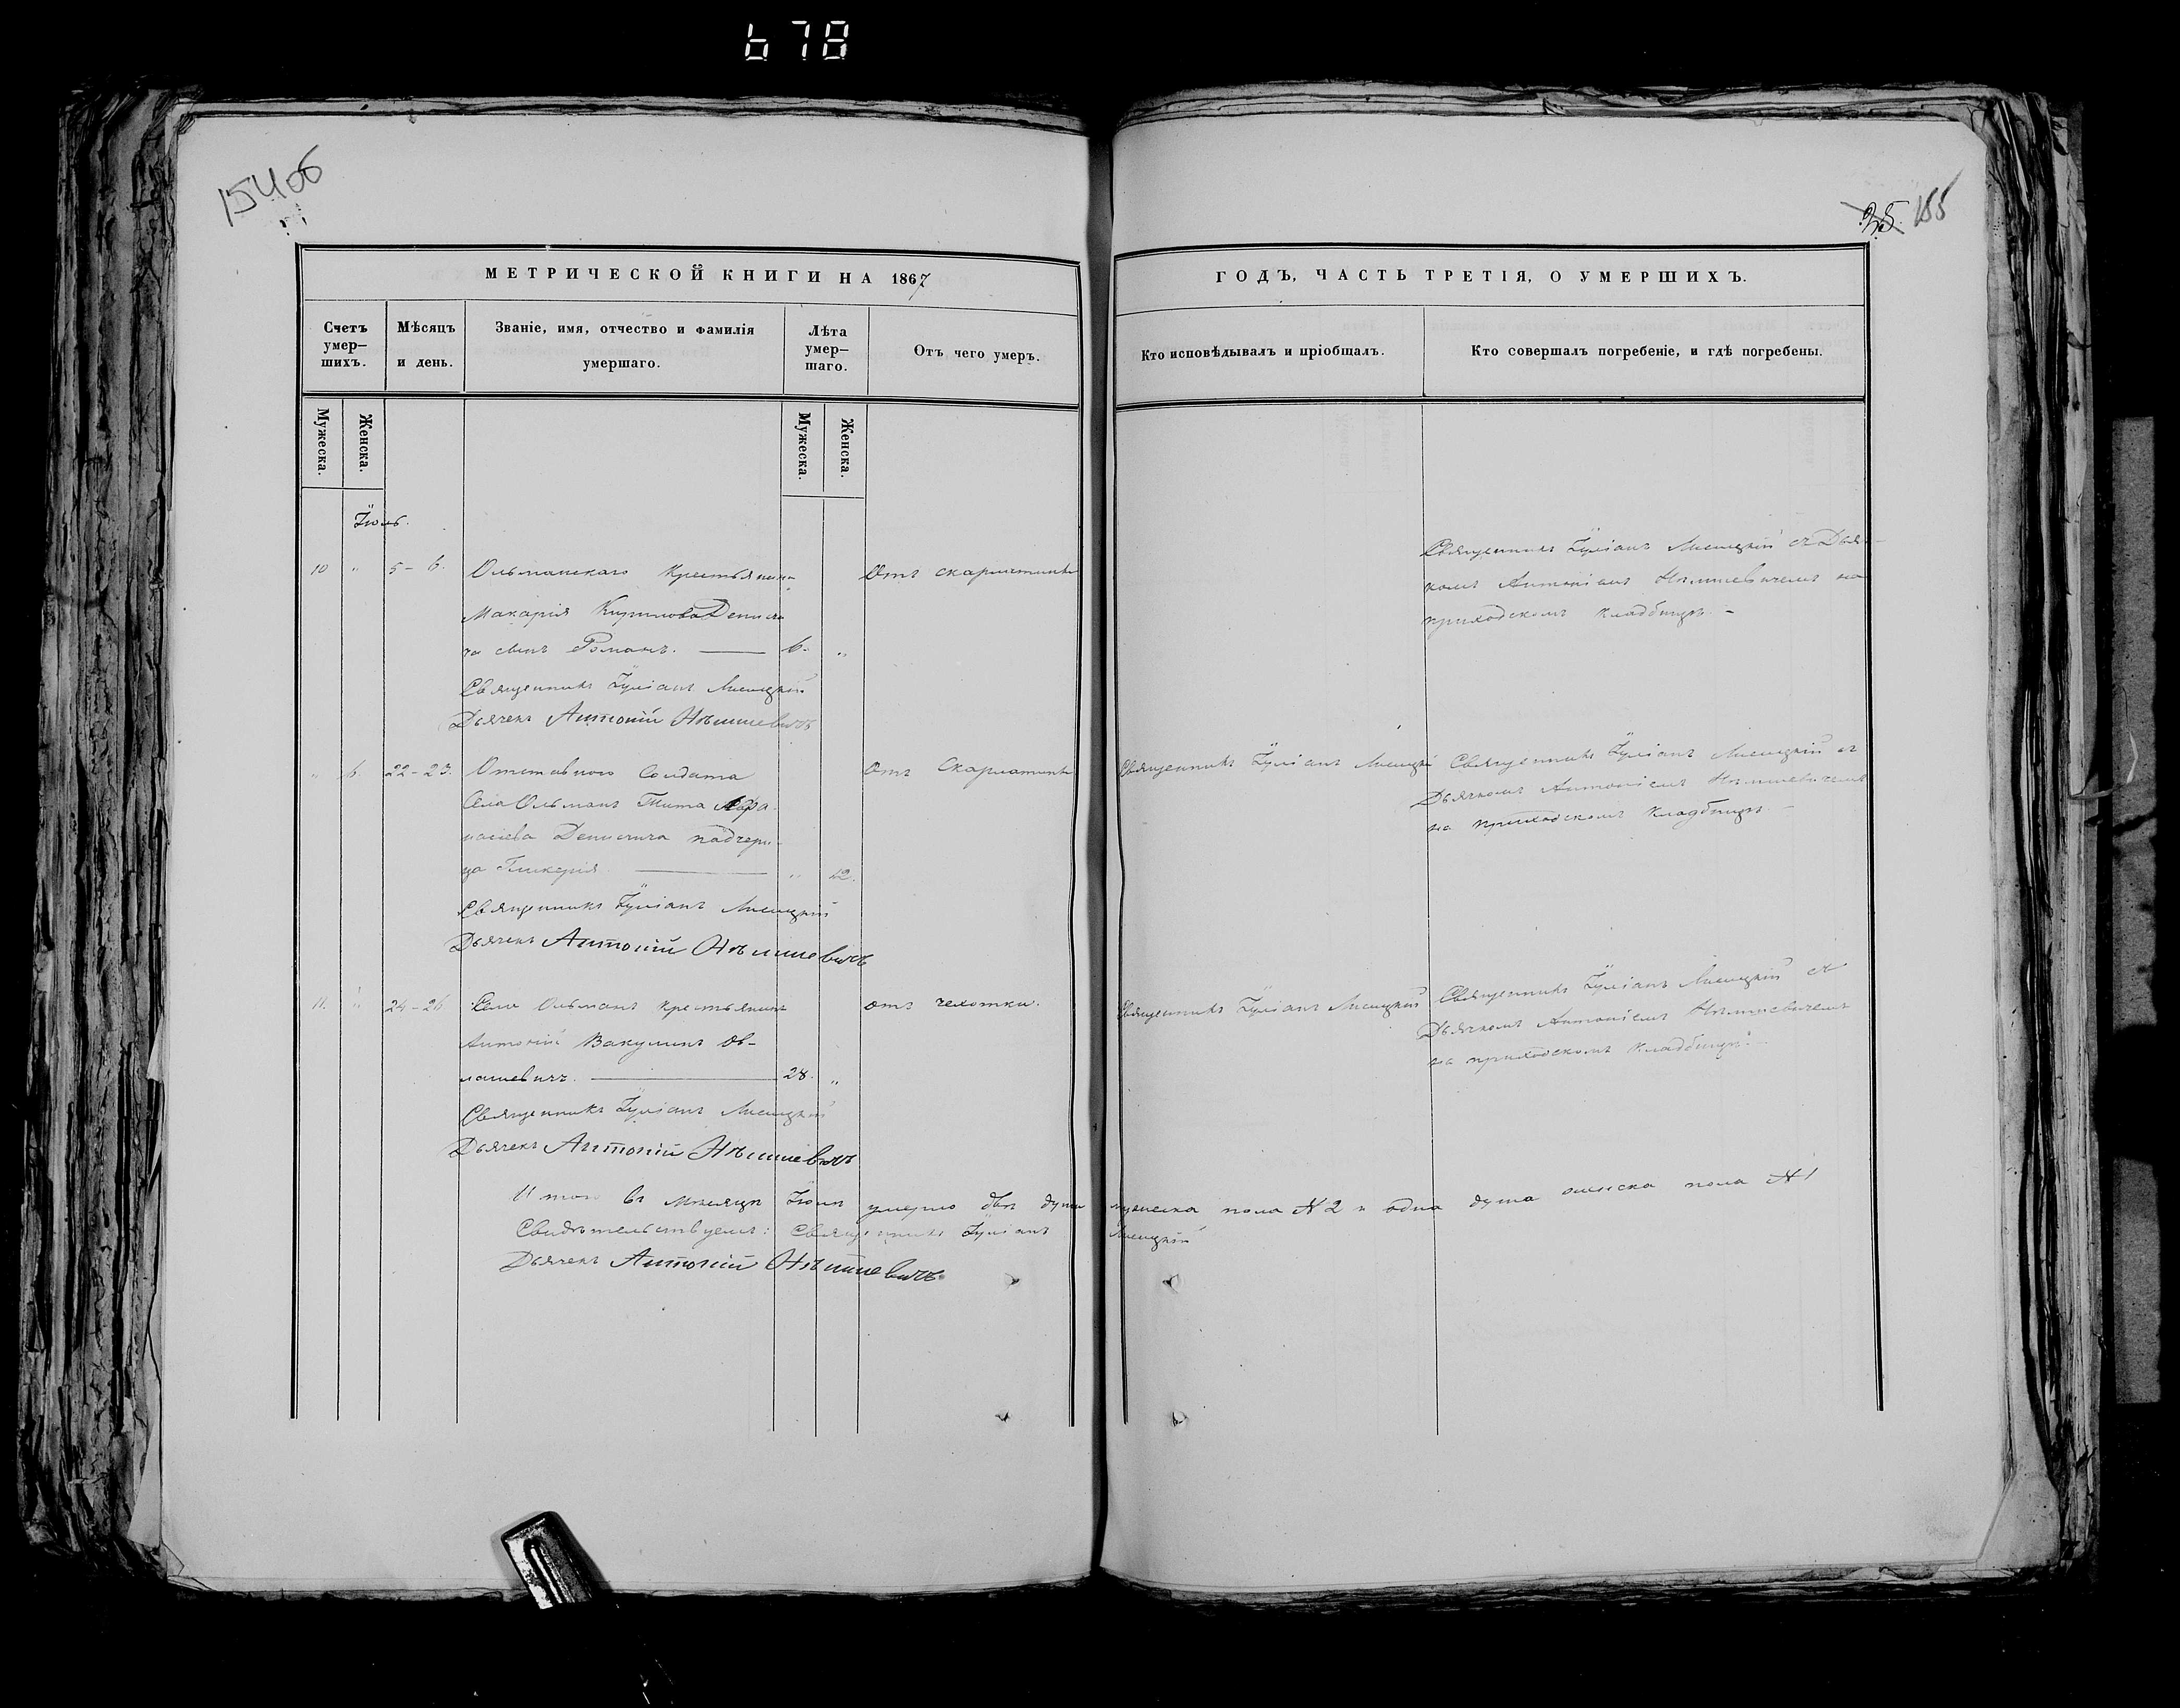 678
155
МЕТРИЧЕСКОЙ КНИГИ НА 1867
ГОДЪ, ЧАСТЬ ТРЕТІЯ, О УМЕРШИХЪ.
Счетъ умер-
шихъ.
Мѣсяцъ
и день.
Званіе, имя, отчество и фамилія
умершаго.
Лѣта
умер-
шаго.
Отъ чего умеръ.
Кто исповѣдывалъ и пріобщалъ.
Кто совершалъ погребеніе, и гдѣ погребены.
Мужеска.
Женска.
Мужеска.
Женска.
Іюль.
10 " 5-6. Ольманскаго Крестьянина
Макарія Кирилова Дениси-
ча сынъ Романъ. — 6. "
Отъ скарлатины
Священникъ Іуліанъ Лисицкій съ Дья-
комъ Антоніемъ на
приходскомъ кладбищѣ. -
Священникъ Іуліанъ Лисицкій
Дьячекъ Антоній
" 6. 22-23. Отставного Солдата
Села Ольманъ Тита Афа-
насіева Денисича падчери-
ца Гликерія — " 12.
Отъ Скарлатины
Священникъ Іуліанъ Лисицкій
Священникъ Іуліанъ Лисицкій съ
Дьячкомъ Антоніемъ
на приходскомъ Кладбищѣ. -
Священникъ Іуліанъ Лисицкій
Дьячекъ Антоній
11. " 24-26 Села Ольманъ крестьянинъ
Антоній Вакулинъ
— 28. "
отъ чехотки.
Священникъ Іуліанъ Лисицкій
Священникъ Іуліанъ Лисицкій съ
Дьячкомъ Антоніемъ
на приходскомъ Кладбищѣ. -
Священникъ Іуліанъ Лисицкій
Дьячекъ Антоній
Итого въ мѣсяцѣ Іюлѣ умерло двѣ души мужеска пола № 2 и одна душа женска пола № 1
Свидѣтельствуемъ: Священникъ Іуліанъ Лисицкій
Дьячекъ Антоній